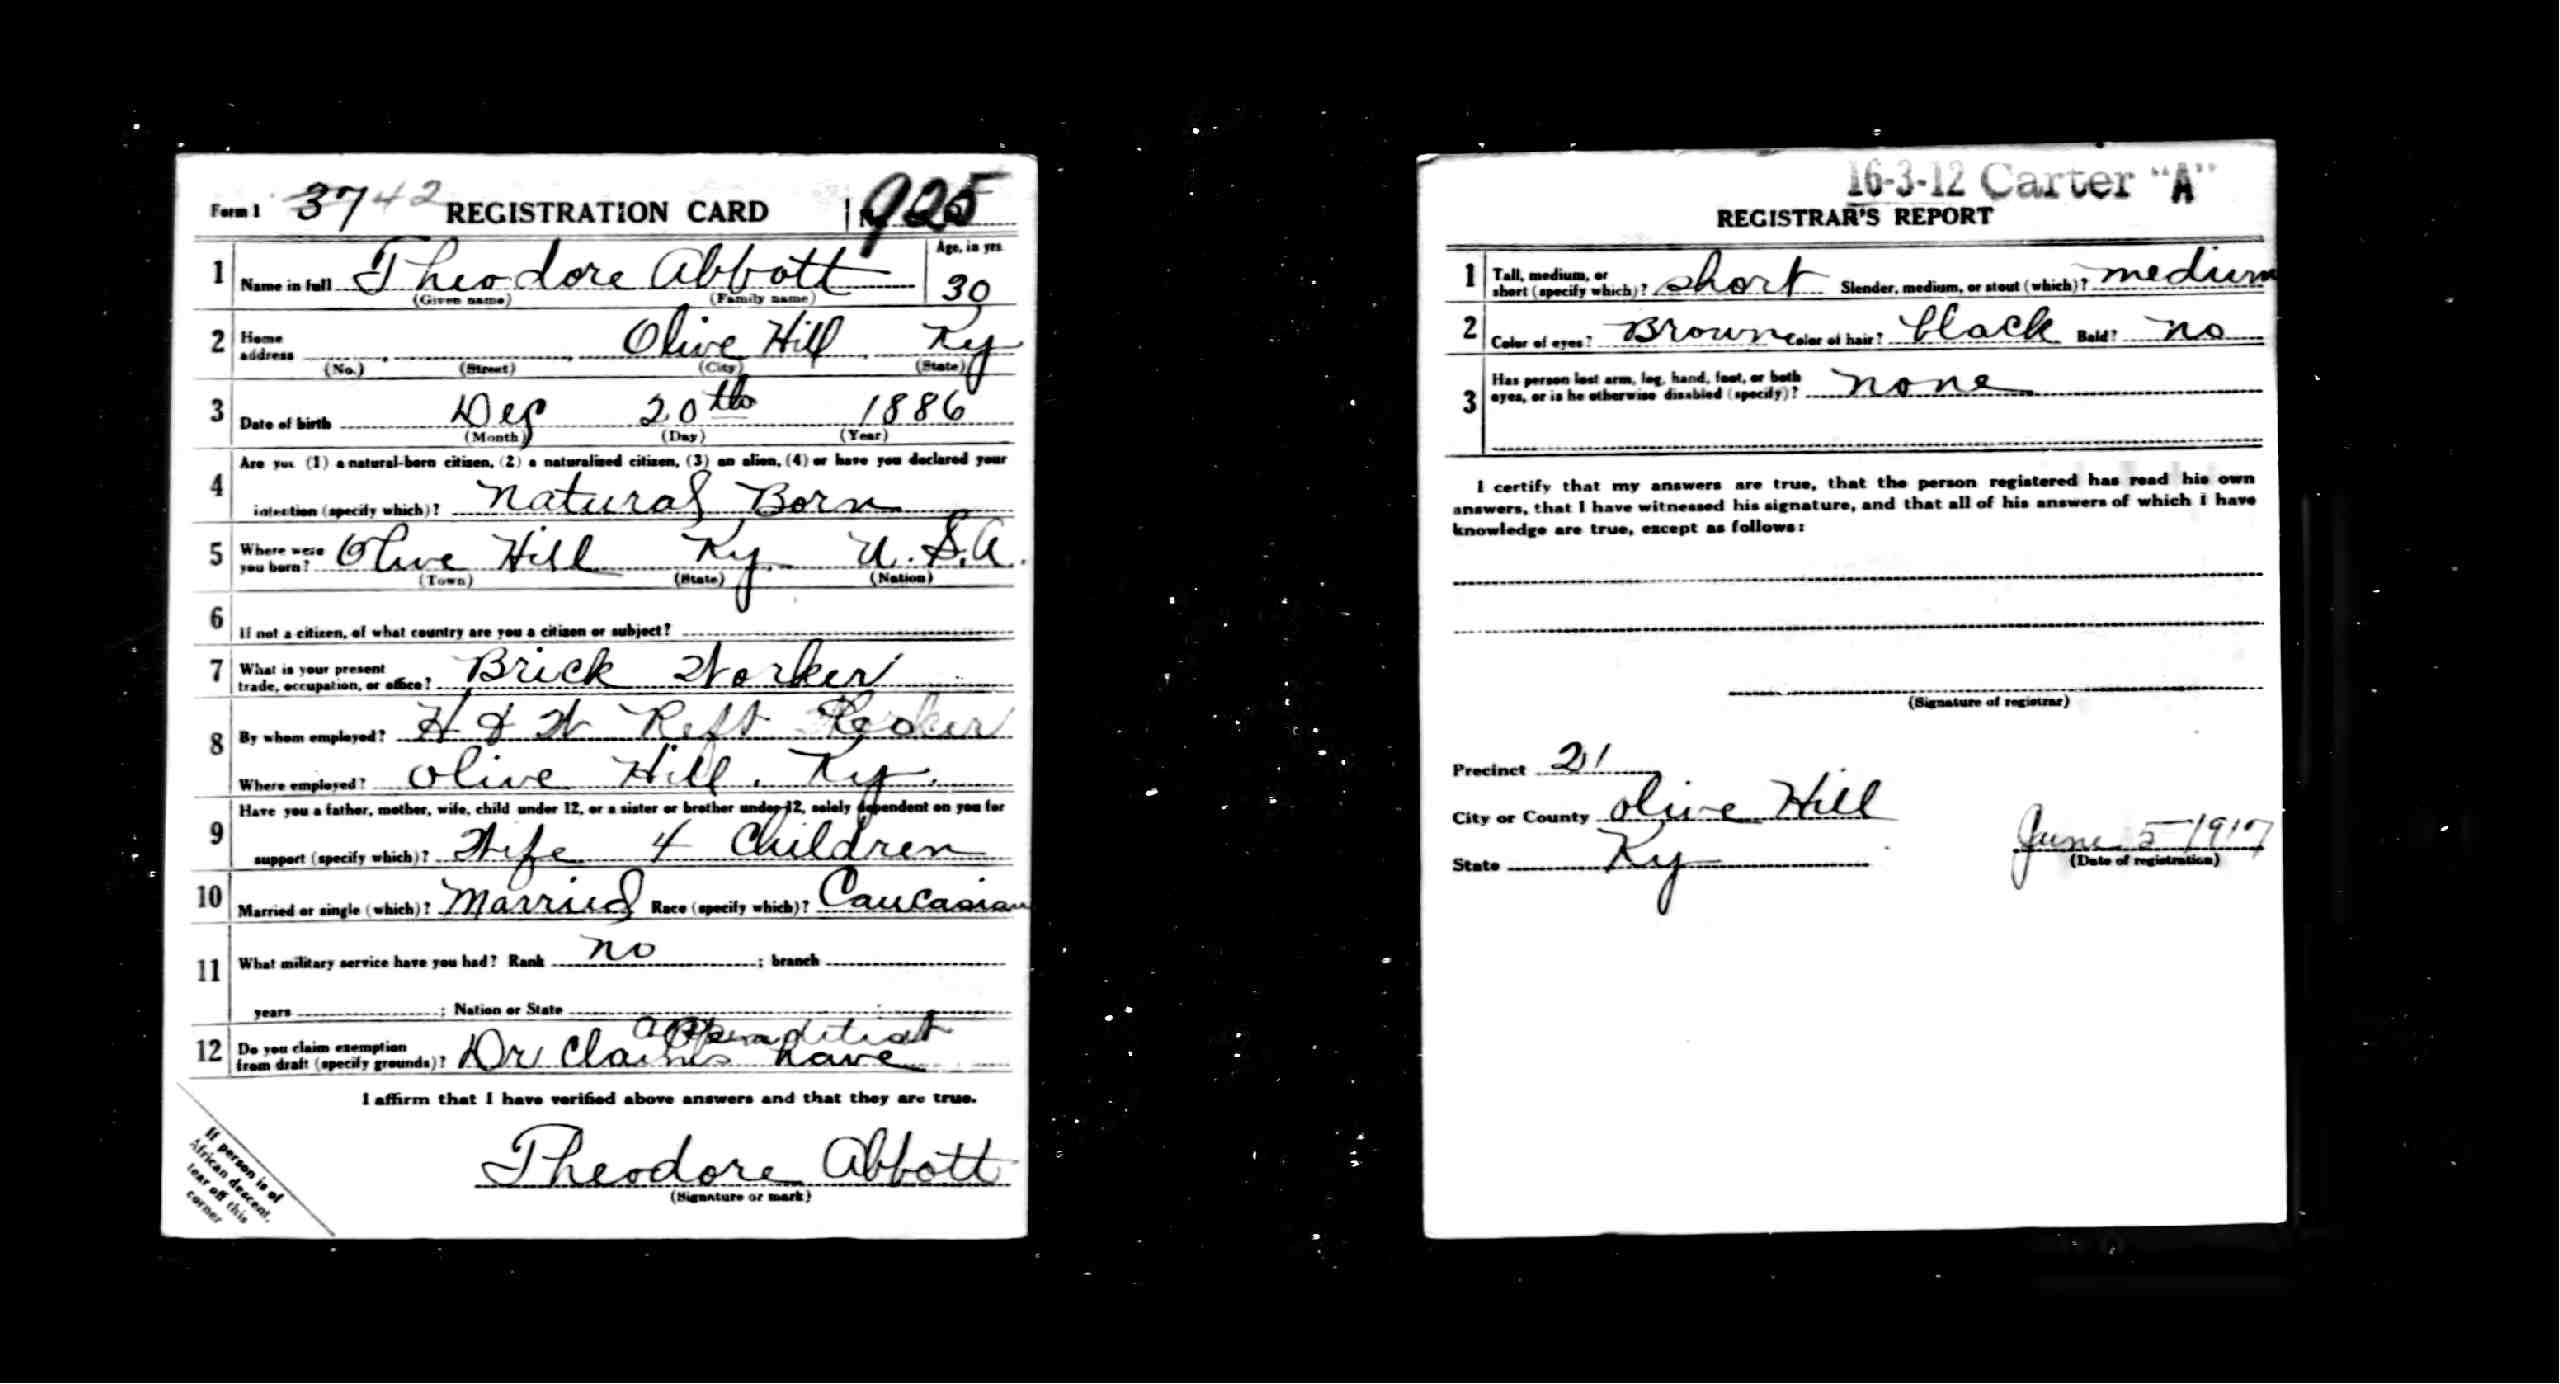 Form 1 3742 REGISTRATION CARD No. 925
1 Name in full Theodore Abbott Age, in yrs. 30
(Given name) (Family name)
2 Home address Olive Hill, Ky
(No.) (Street) (City) (State)
3 Date of birth Dec 20th 1886
(Month) (Day) (Year)
4 Are you (1) a natural-born citizen, (2) a naturalized citizen, (3) an alien, (4) or have you declared your
intention (specify which)? Natural Born
5 Where were you born? Olive Hill Ky. U.S.A.
(Town) (State) (Nation)
6 If not a citizen, of what country are you a citizen or subject?
7 What is your present trade, occupation, or office? Brick Worker
8 By whom employed? H & W Reft
Where employed? Olive Hill, Ky.
9 Have you a father, mother, wife, child under 12, or a sister or brother under 12, solely dependent on you for
support (specify which)? Wife 4 Children
10 Married or single (which)? Married Race (specify which)? Caucasian
11 What military service have you had? Rank no ; branch
years ; Nation or State
12 Do you claim exemption from draft (specify grounds)? Dr claims have
I affirm that I have verified above answers and that they are true.
Theodore Abbott
(Signature or mark)
If person is of
African descent,
tear off this
corner
16-3-12 Carter "A"
REGISTRAR'S REPORT
1 Tall, medium, or short (specify which)? short Slender, medium, or stout (which)? medium
2 Color of eyes? Brown Color of hair? black Bald? no
3 Has person lost arm, leg, hand, foot, or both eyes, or is he otherwise disabled (specify)? none
I certify that my answers are true, that the person registered has read his own
answers, that I have witnessed his signature, and that all of his answers of which I have
knowledge are true, except as follows:
(Signature of registrar)
Precinct 21
City or County Olive Hill
State Ky
June 5 1917
(Date of registration)